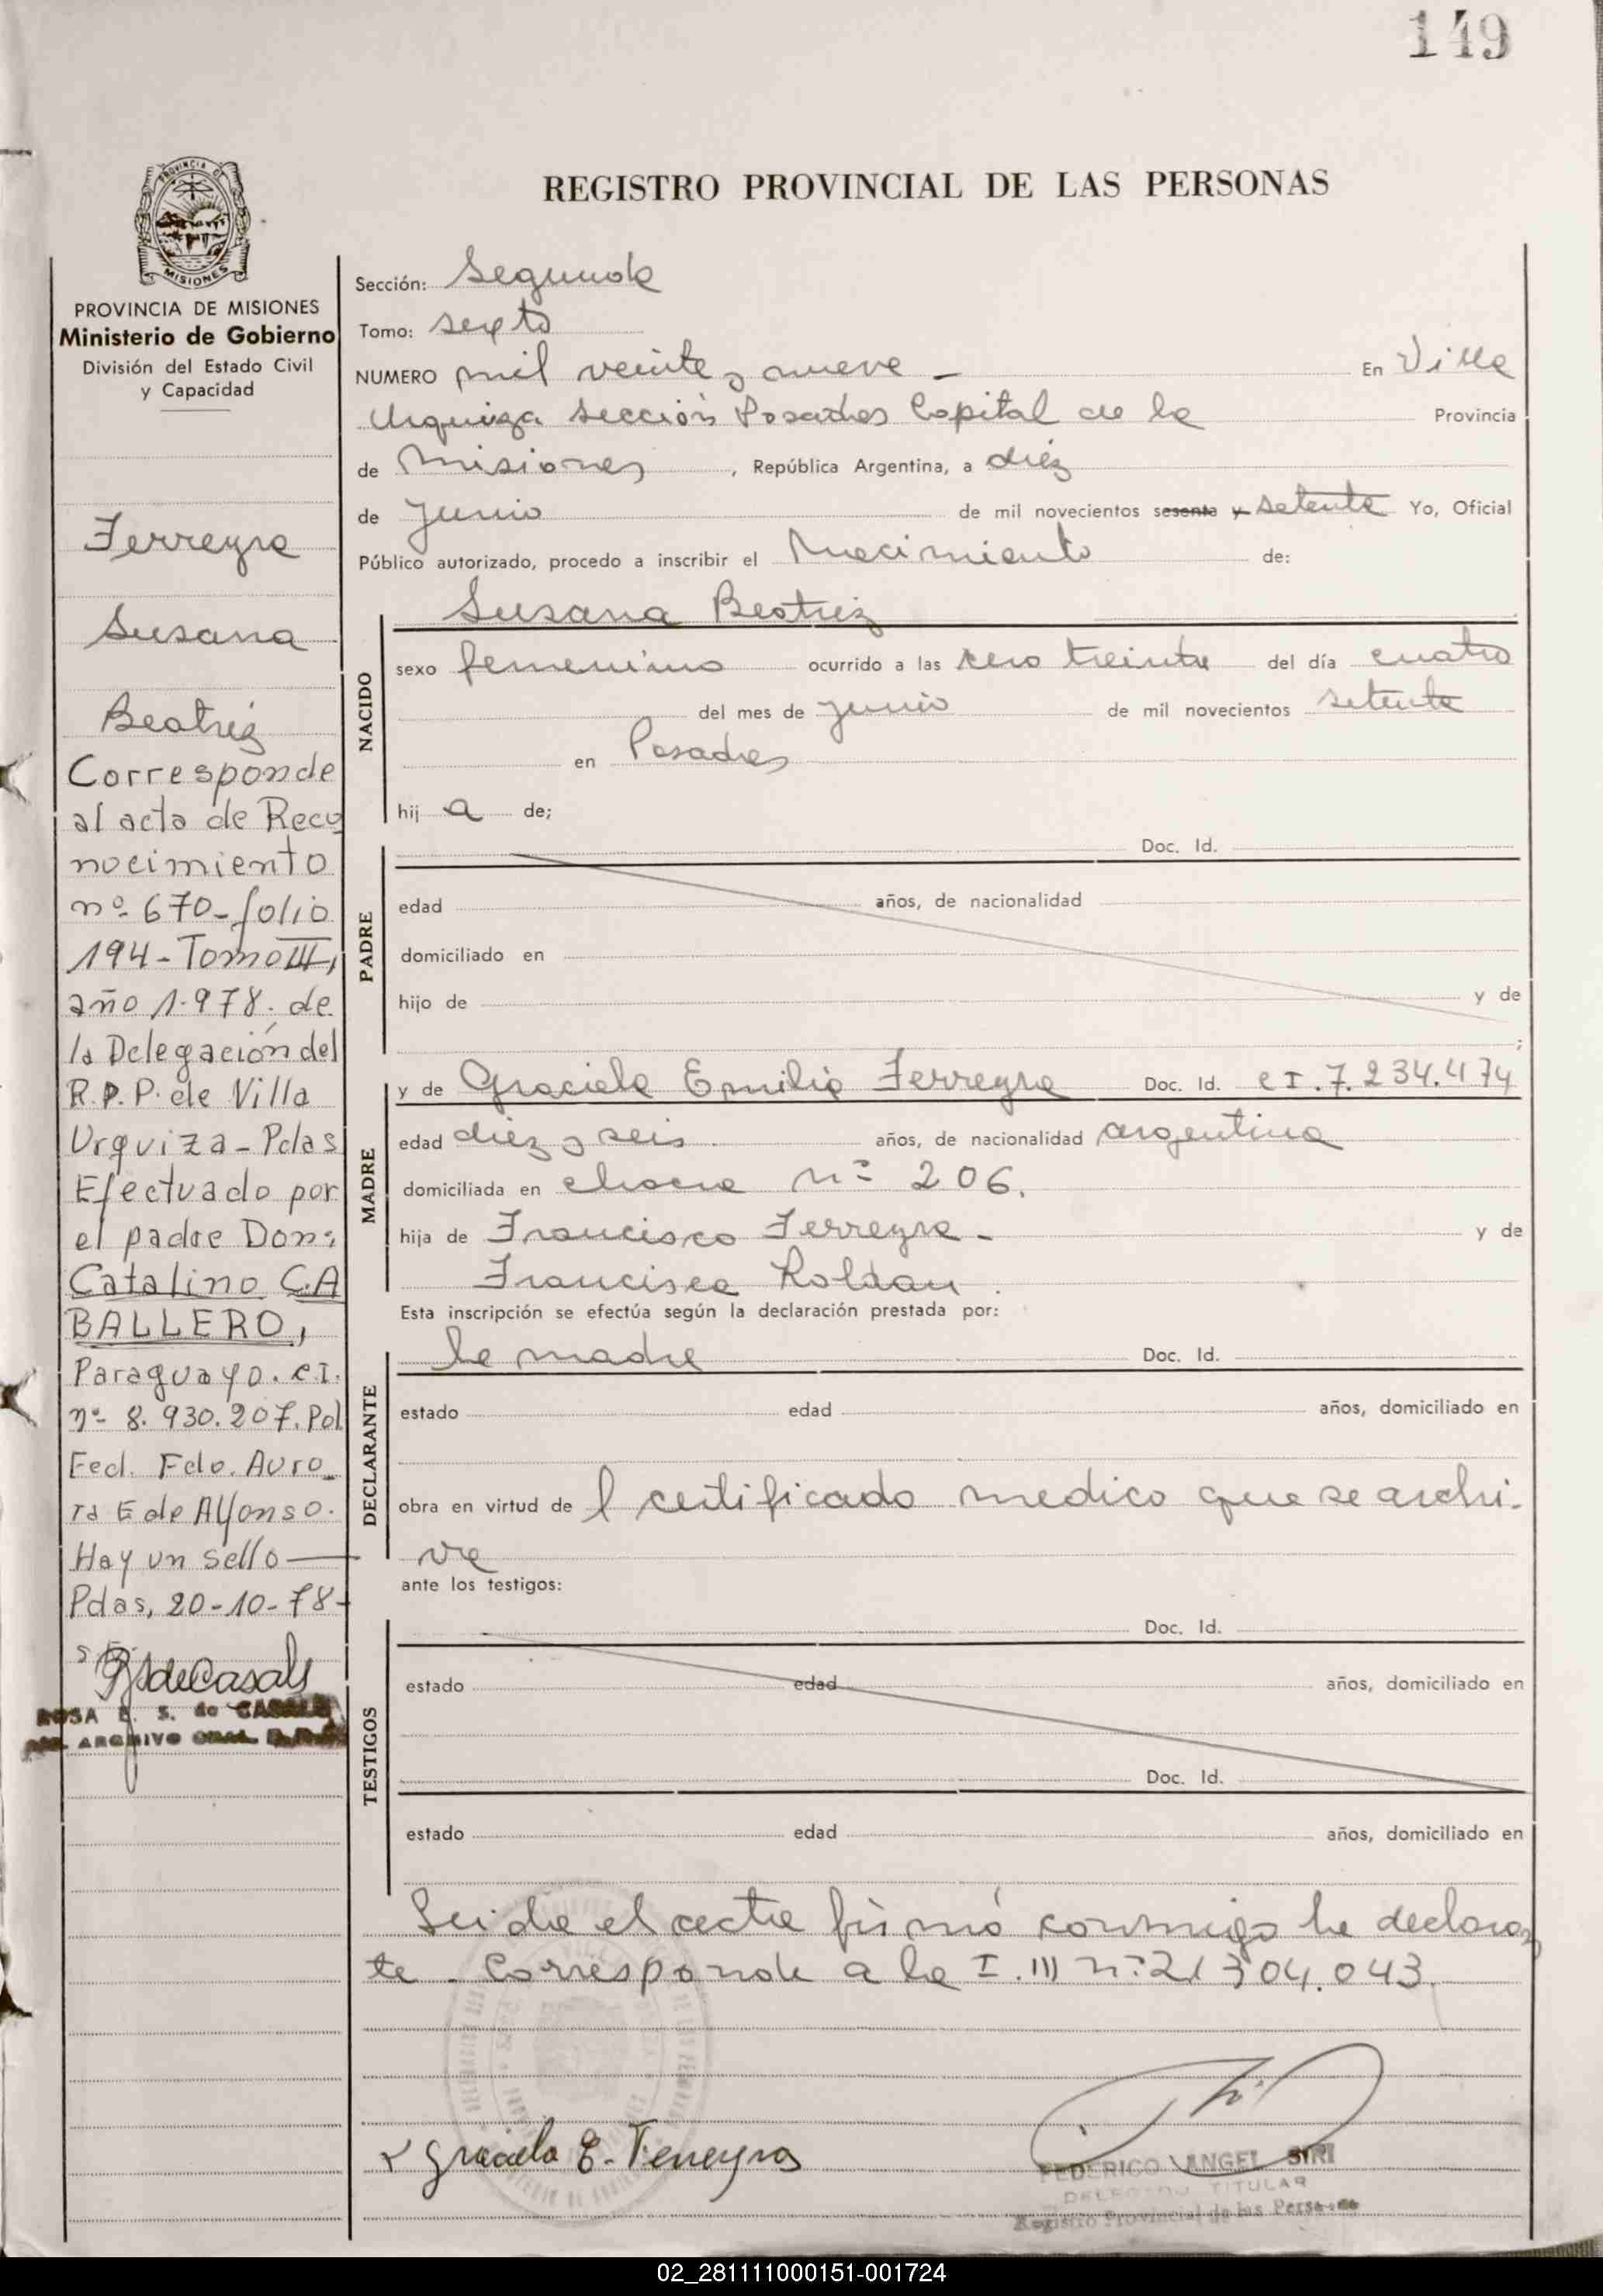 149
PROVINCIA DE
MISIONES
REGISTRO PROVINCIAL DE LAS PERSONAS
PROVINCIA DE MISIONES
Ministerio de Gobierno
División del Estado Civil
y Capacidad
Ferreyra
Susana
Beatriz
Corresponde
al acta de Reco
nocimiento
nº 670-folio
194-Tomo III,
año 1.978. de
la Delegación del
R.P.P. de Villa
Urquiza-Pdas
Efectuado por
el padre Don:
Catalino CA
BALLERO,
Paraguayo. C.I.
nº 8.930.207. Pol
Fed. Fdo. Auro_
ra E de Alfonso.
Hay un sello—
Pdas, 20-10-78-
RSdeCasals
ROSA E. S. de CASALS
ARCHIVO GRAL.
Sección: Segunda
Tomo: sexto
NUMERO mil veinte y nueve - En Villa
Urquiza Sección Posadas Capital de la Provincia
de Misiones, República Argentina, a diez
de Junio de mil novecientos sesenta y setenta Yo, Oficial
Público autorizado, procedo a inscribir el Nacimiento de:
NACIDO
Susana Beatriz
sexo femenino ocurrido a las cero treinta del día cuatro
del mes de junio de mil novecientos setenta
en Posadas
hij a de;
PADRE
Doc. Id.
edad años, de nacionalidad
domiciliado en
hijo de y de
;
MADRE
y de Graciela Emilia Ferreyra Doc. Id. C.I. 7.234.474
edad diez y seis años, de nacionalidad argentina
domiciliada en chacra nº 206.
hija de Francisco Ferreyra - y de
Francisca Roldan.
Esta inscripción se efectúa según la declaración prestada por:
DECLARANTE
la madre Doc. Id.
estado edad años, domiciliado en
obra en virtud de l certificado medico que se archi-
va
ante los testigos:
TESTIGOS
Doc. Id.
estado edad años, domiciliado en
Doc. Id.
estado edad años, domiciliado en
Leida el acta firmó conmigo la declaran
te. Corresponde a la I. III nº 21 304.043.
Graciela E. Ferreyra
FEDERICO ANGEL SIRI
DELEGADO TITULAR
Registro Provincial de las Personas
02_281111000151-001724